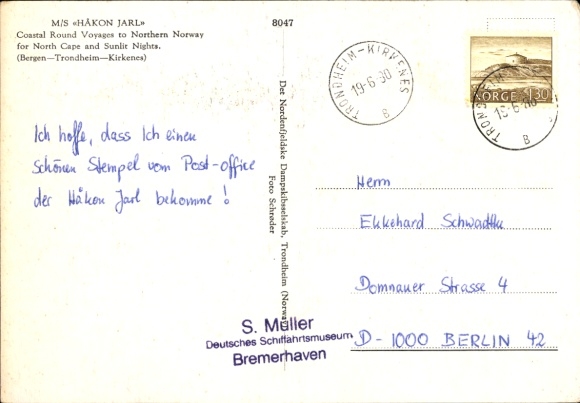 M/S «HÅKON JARL»
Coastal Round Voyages to Northern Norway
for North Cape and Sunlit Nights.
(Bergen—Trondheim—Kirkenes)
8047
TRONDHEIM-KIRKENES
19-6-80
B
NORGE 1.30
TRONDHEIM-KI
19-6-80
B
Ich hoffe, dass Ich einen
schönen Stempel vom Post-office
der Håkon Jarl bekomme!
Det Nordenfjeldske Dampskibsselskab, Trondheim (Norway)
Foto Schrøder
Herrn
Ekkehard Schwadtke
Domnauer Strasse 4
D-1000 BERLIN 42
S. Müller
Deutsches Schiffahrtsmuseum
Bremerhaven